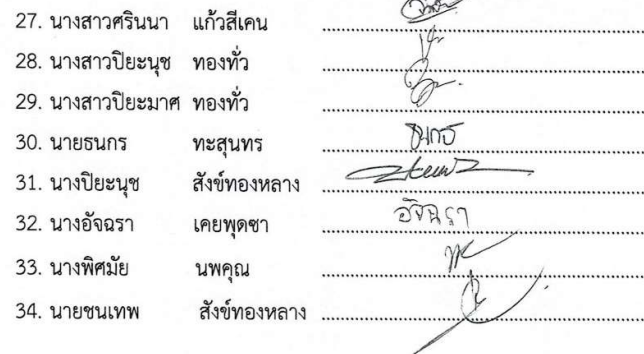 27. นางสาวศรินนา แก้วสีเคน
28. นางสาวปิยะนุช ทองทั่ว
29. นางสาวปิยะมาศ ทองทั่ว
30. นายธนกร ทะสุนทร ธนกร
31. นางปิยะนุช สังข์ทองหลาง
32. นางอัจฉรา เคยพุดซา อัจฉรา
33. นางพิศมัย นพคุณ
34. นายชนเทพ สังข์ทองหลาง